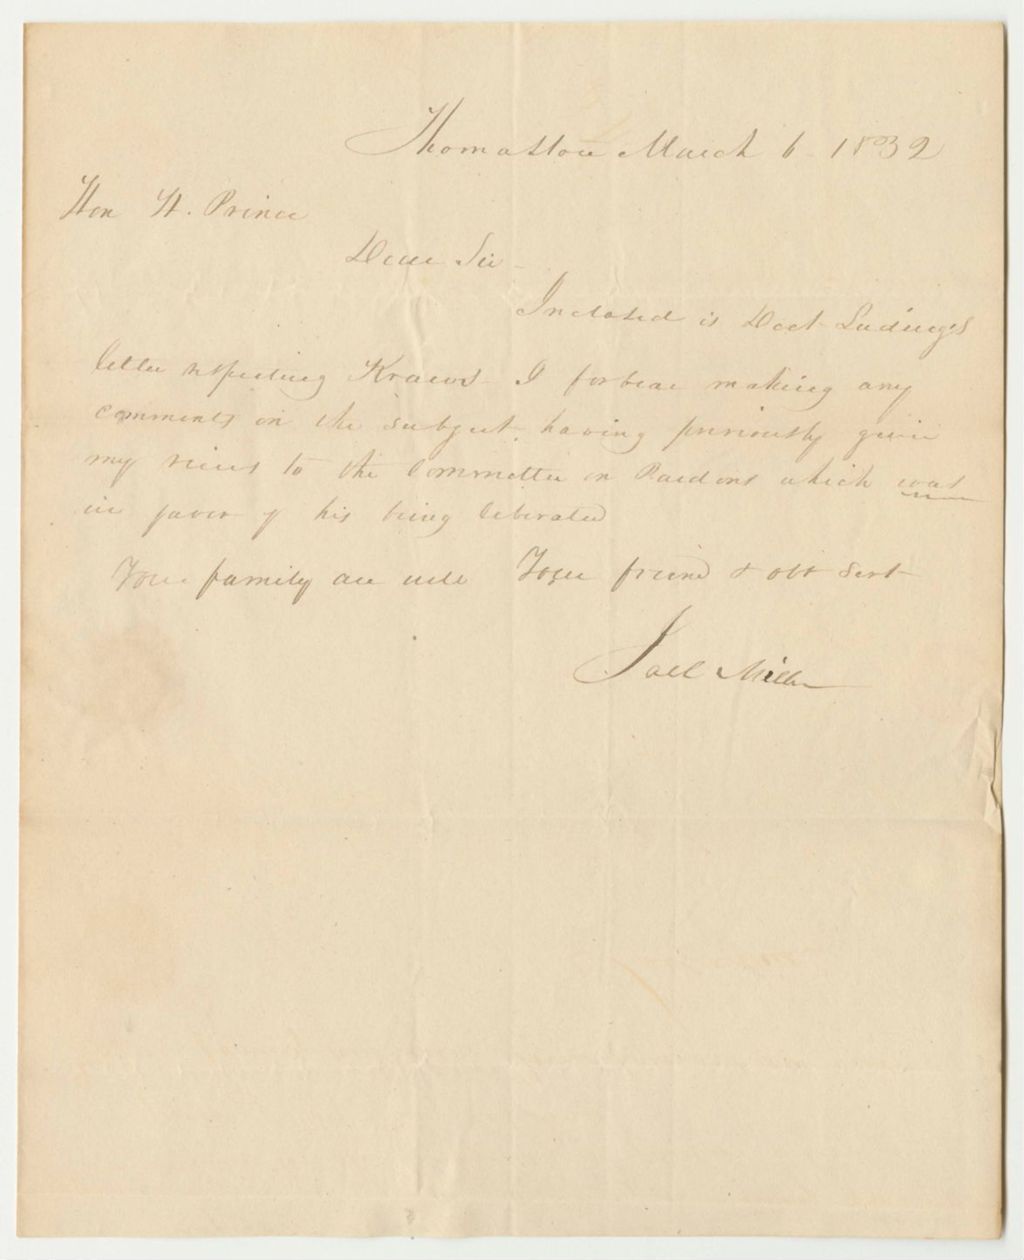 Thomaston March 6 1832
Hon H. Prince
Dear Sir
Inclosed is Doct Ludwigs
letter respecting Kraws I forbear making any
comments on the subject, having previously given
my views to the Committee on Pardons which was
in favor of his being liberated
Your family are well Your friend & obt Servt
Joel Miller